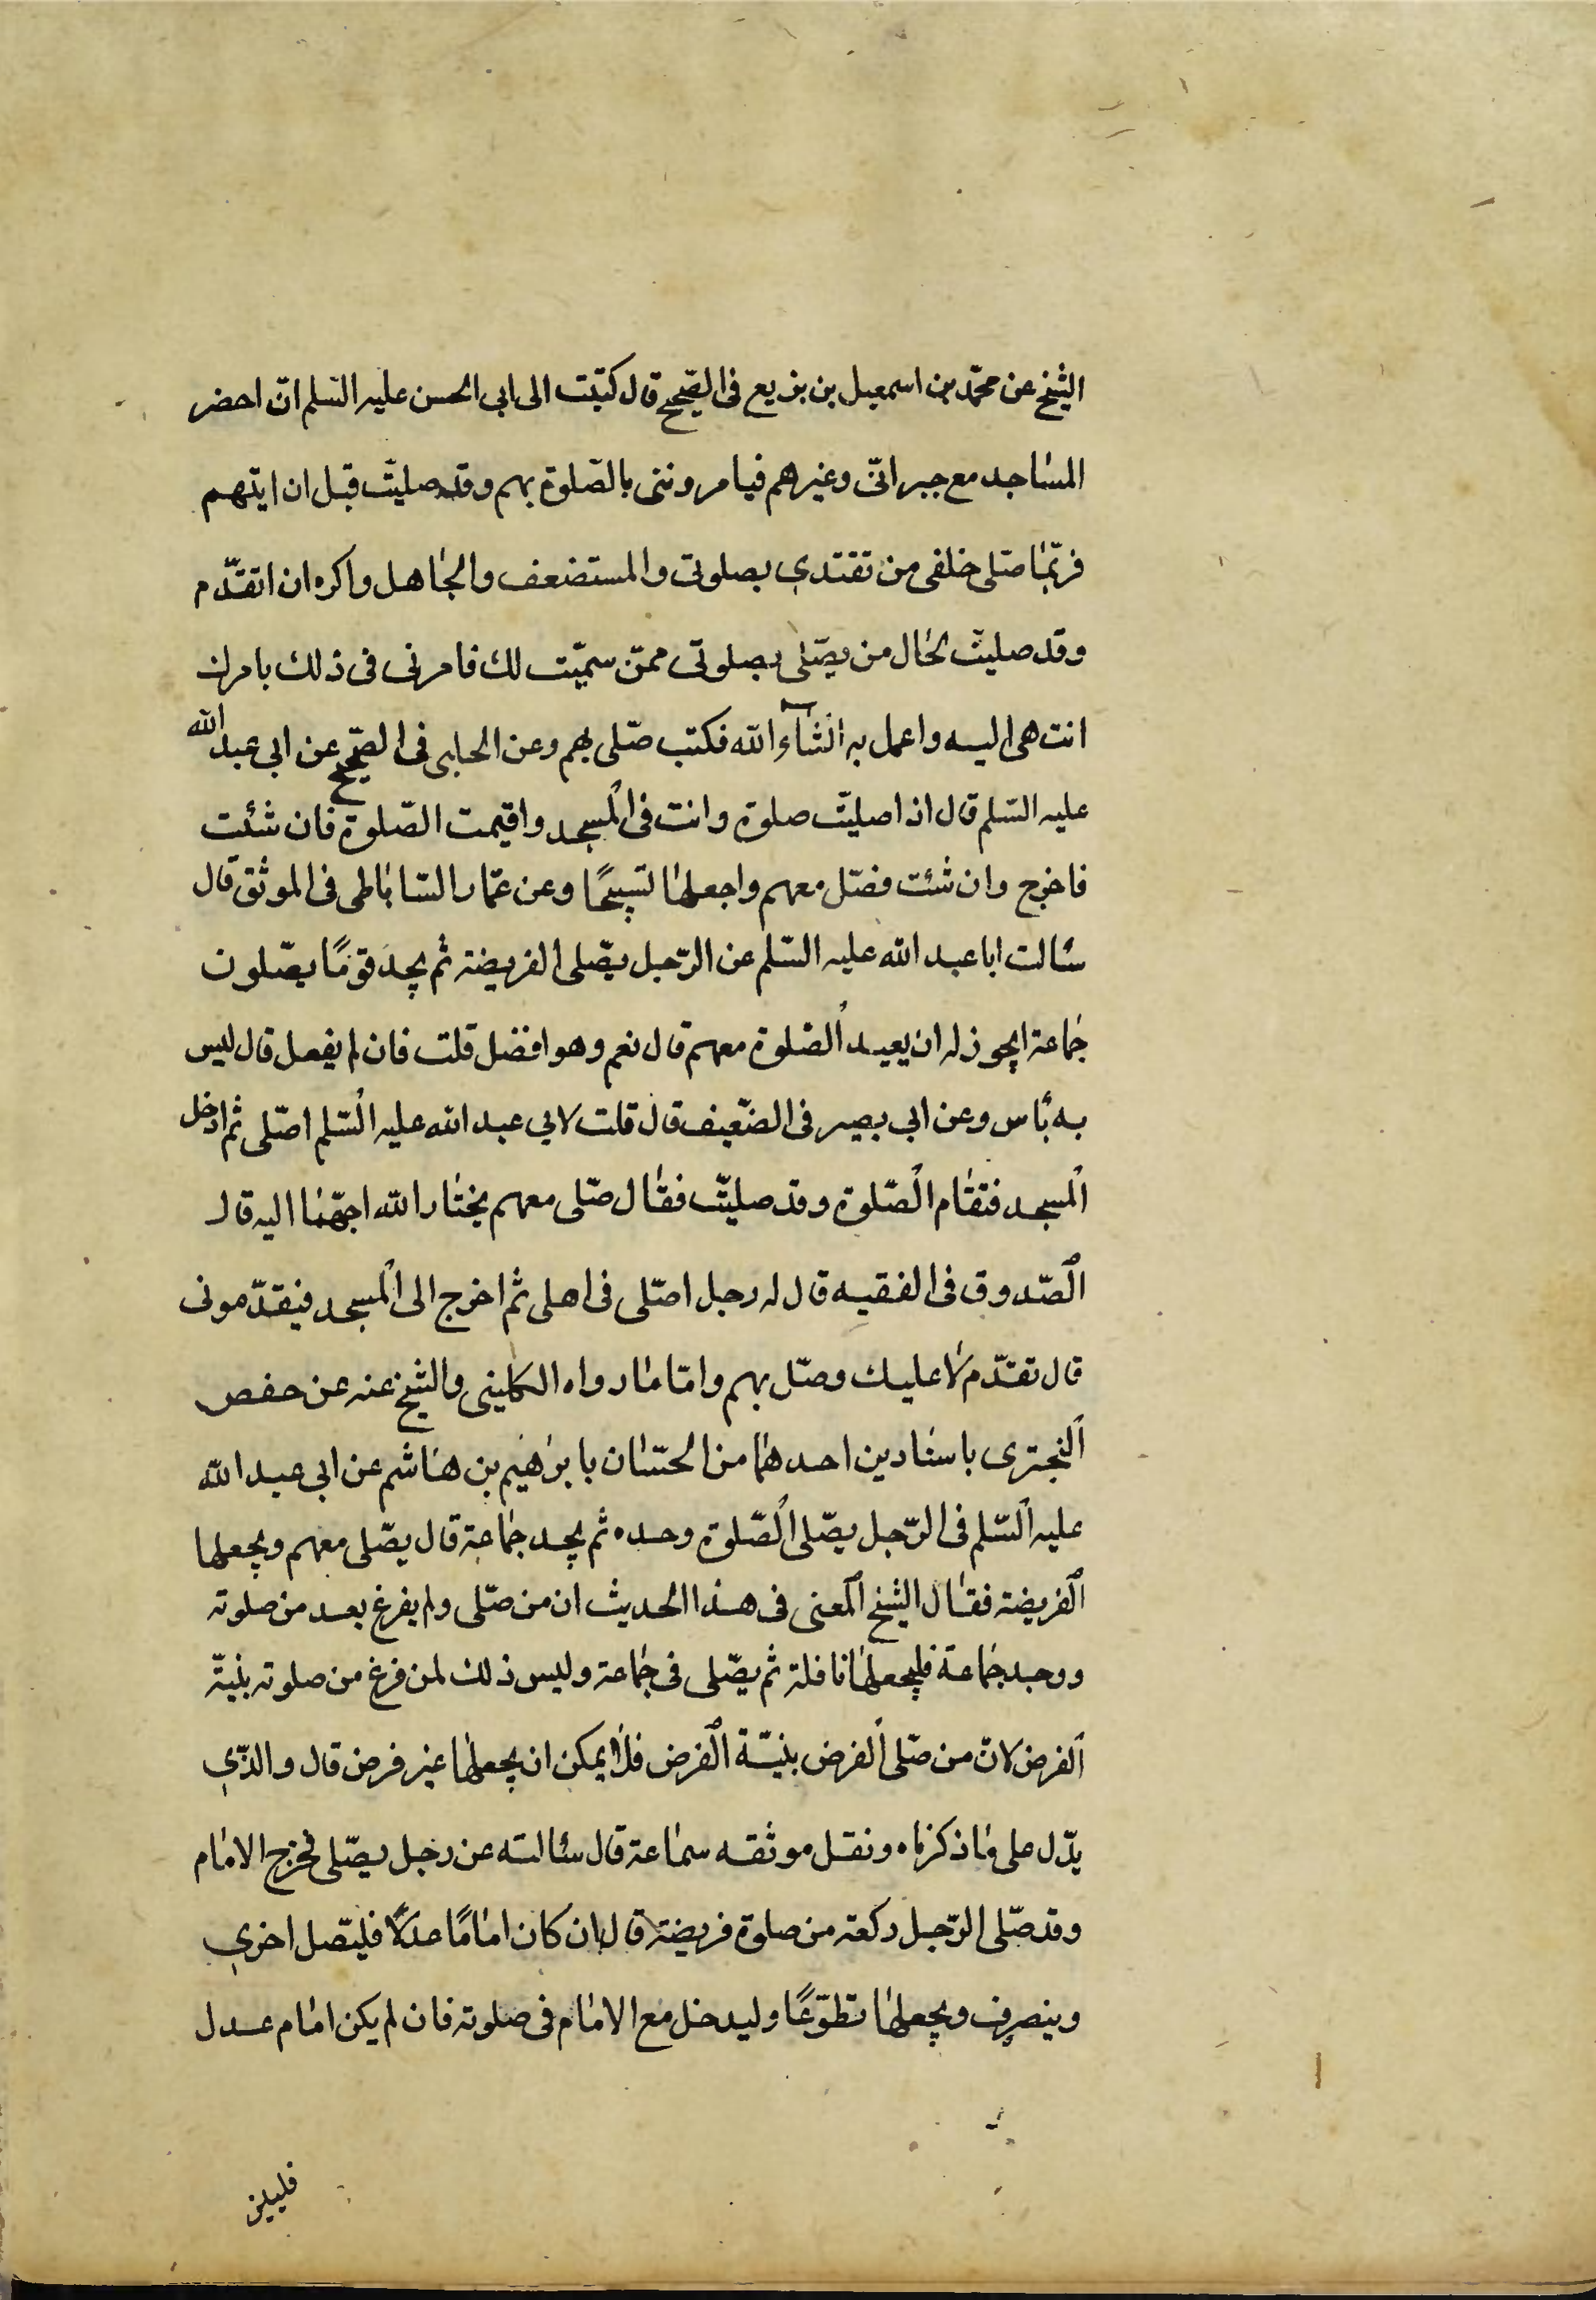 الشيخ عن محمّد بن اسمعيل بن بزيع فى الصّحيح قال كتبت الى ابى الحسن عليه السّلم انّ احضر
المساجد مع جيرانىّ وغيرهم فيامروننى بالصّلوة بهم وقد صليتّ قبل ان ايتهم
فربّما صّلى خلفى من تقتدي بصلوتى والمستضعف والجاهل واكره ان اتقدّم
وقد صليتّ بحال من يصّلى بصلوتى ممّن سميّت لك فامرنى فى ذلك بامرك
انتهى اليه واعمل به انشآء الله فكتب صّلى بهم وعن الحلبى فى الصّحيح عن ابي عبد الله
عليه السّلم قال اذا صليتّ صلوة وانت فى المسجد واقيمت الصّلوة فان شئت
فاخرج وان شئت فصّل معهم واجعلها تسبيحًا وعن عمّار السّاباطى فى الموثق قال
سئالت ابا عبد الله عليه السّلم عن الرّجل يصّلى الفريضة ثم يجد قومًا يصّلون
جماعة ايجوز له ان يعيد الصّلوة معهم قال نعم وهو افضل قلت فان لم يفعل قال ليس
به بأس وعن ابي بصير فى الضّعيف قال قلت لابي عبد الله عليه السّلم اصّلى ثم ادخل
المسجد فتقام الصّلوة وقد صليتّ فقال صّلى معهم يختار الله احبّهما اليه قال
الصّدوق فى الفقيه قال له رجل اصّلى فى اهلى ثم اخرج الى المسجد فيقدّمونى
قال تقدّم لا عليك وصّل بهم وامّا ما رواه الكلينى والشيخ عنه عن حفص
النجترى باسنادين احدهما من الحسّان بابراهيم بن هاشم عن ابي عبد الله
عليه السّلم فى الرّجل يصّلى الصّلوة وحده ثم يجد جماعة قال يصّلى معهم ويجعلها
الفريضة فقال الشيخ المعنى فى هذا الحديث ان من صّلى ولم يفرغ بعد من صلوته
ووجد جماعة فليجعلها نافلة ثم يصّلى فى جماعة وليس ذلك لمن فرغ من صلوته بنيّة
الفرض لانّ من صّلى الفرض بنيّة الفرض فلا يمكن ان يجعلها غير فرض قال والذّي
يدّل على ما ذكرناه ونقل موثقه سماعة قال سئالته عن رجل يصّلى فخرج الامام
وقد صّلى الرّجل ركعة من صلوة فريضة قال ان كان امامًا عدلًا فليصّل اخري
وينصرف ويجعلها تطوّعًا وليدخل مع الامام فى صلوته فان لم يكن امام عدل